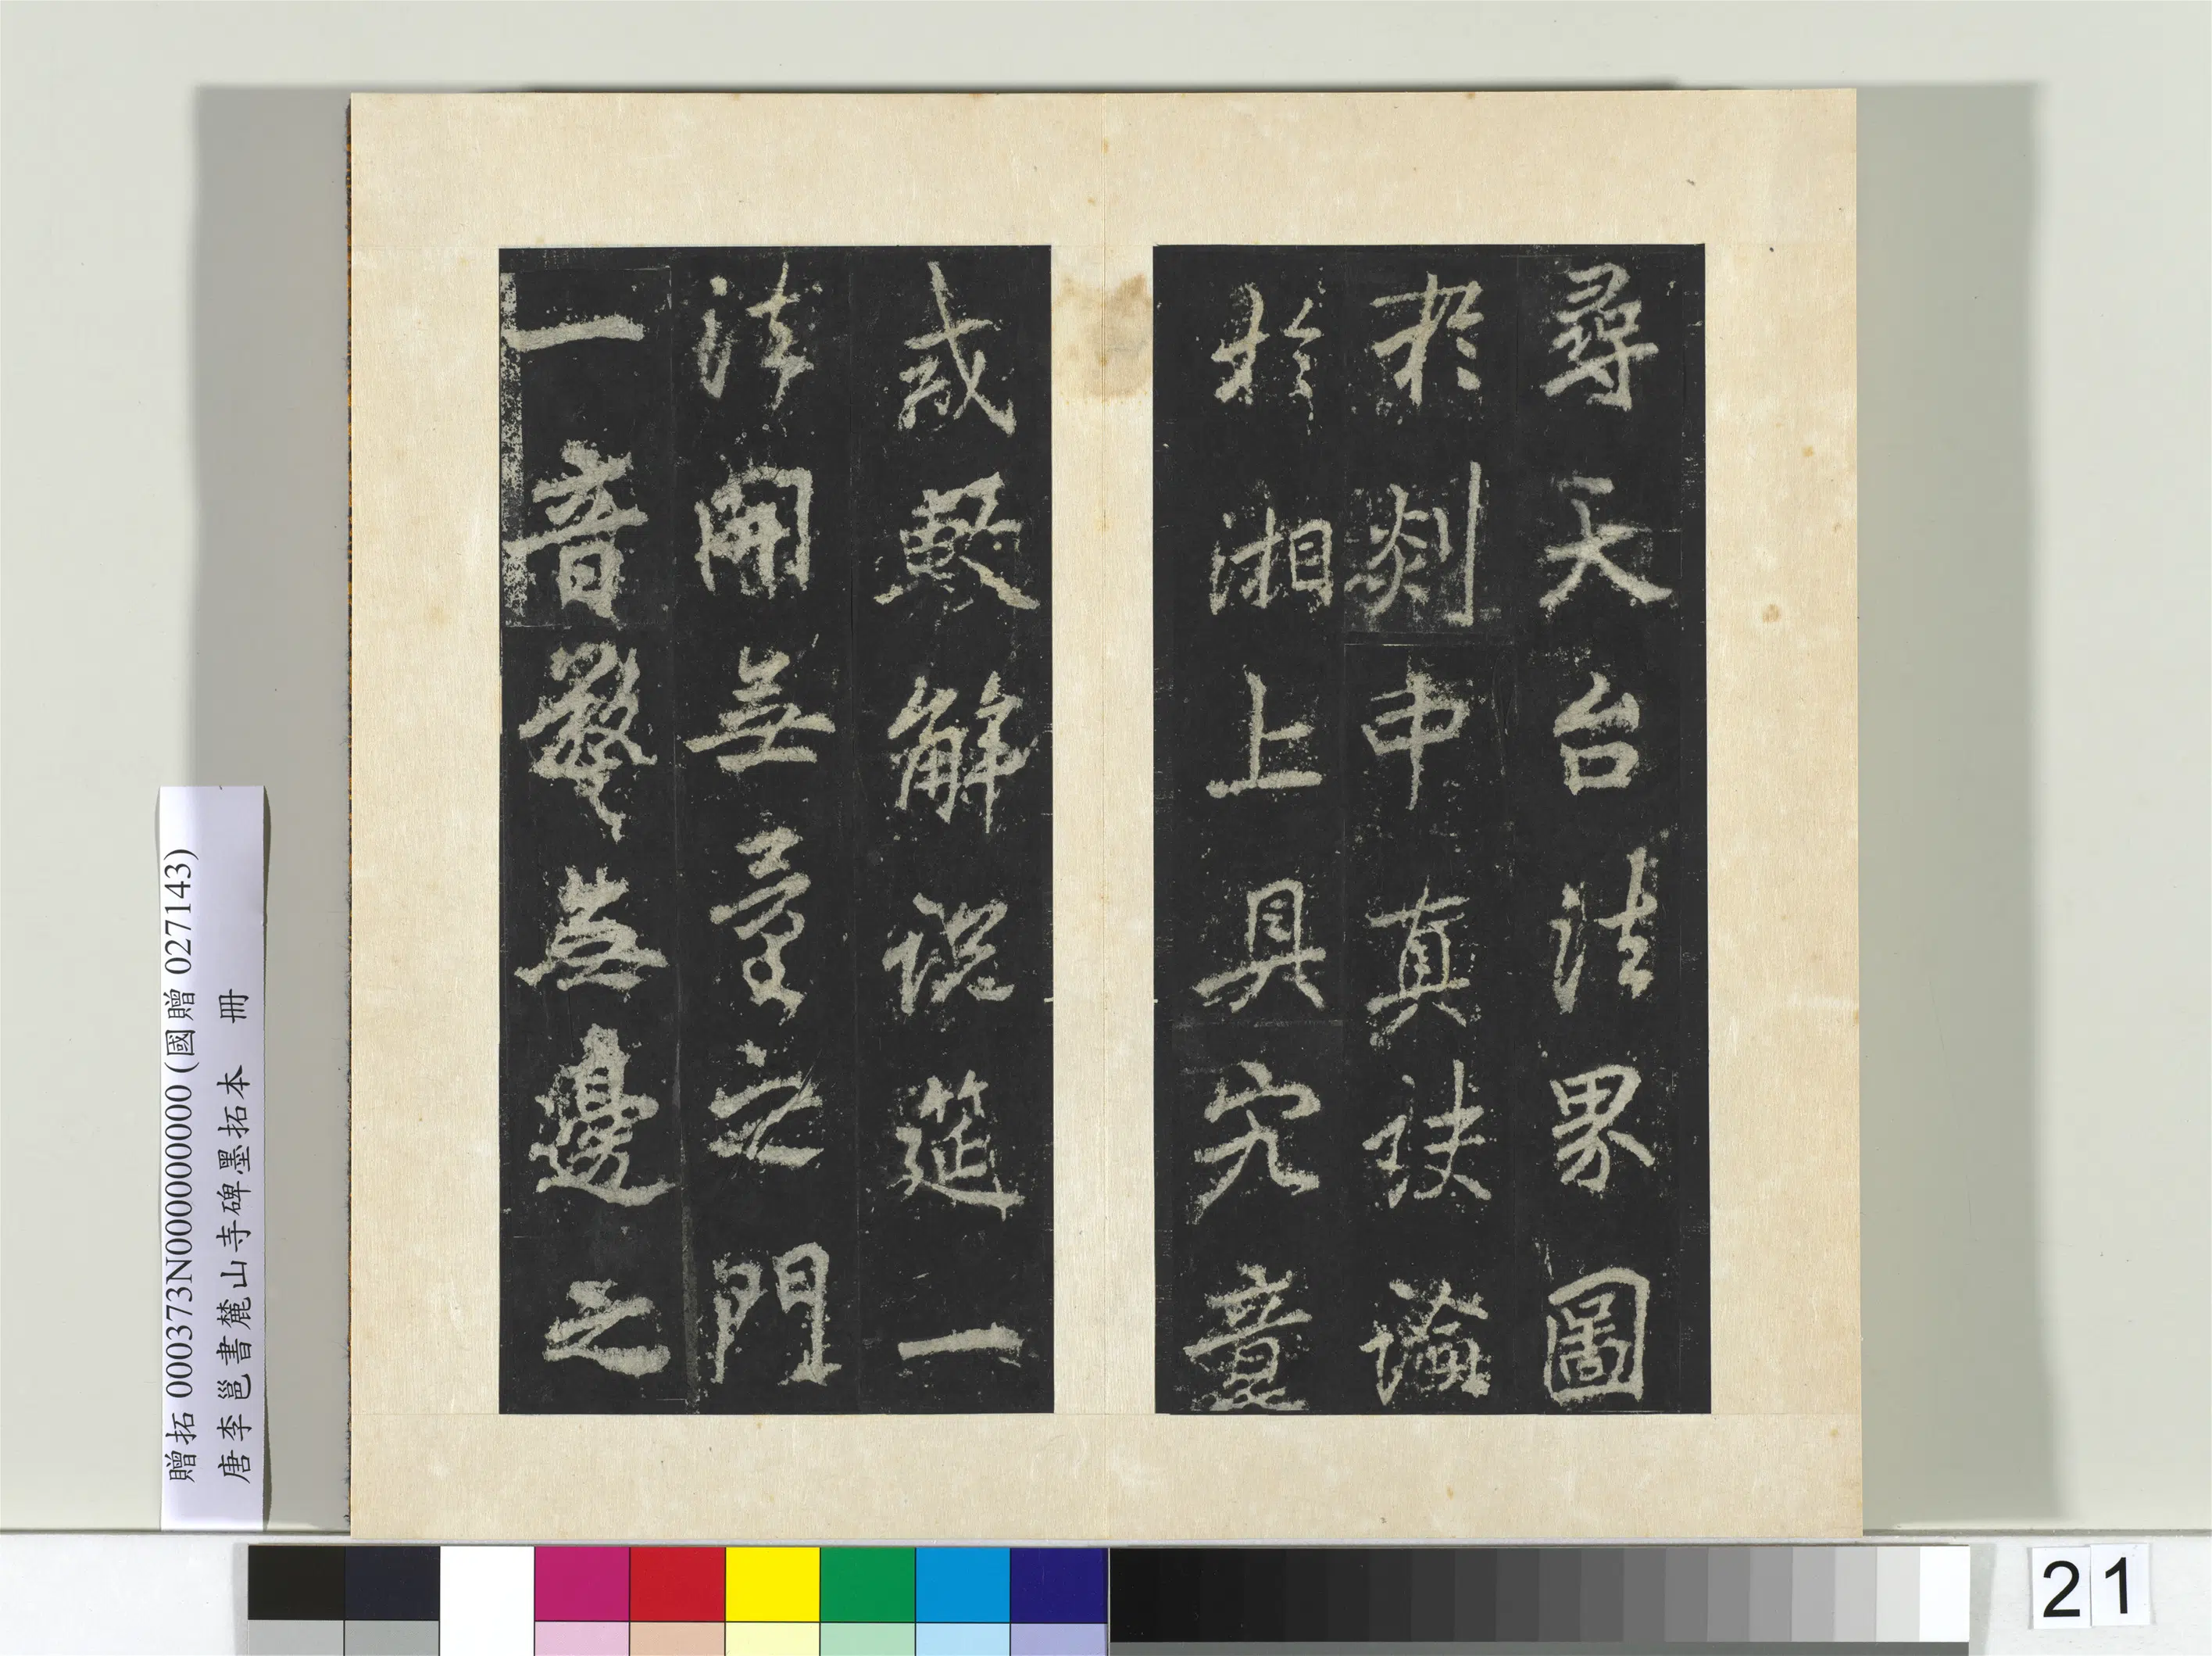 尋天台法界圖
於剡中真訣論
於湘上具究竟
戒數解説筵一
法開無量之門
一音警無邊之
贈拓 000373N000000000 (國贈 027143)
唐李邕書麓山寺碑墨拓本　冊
21